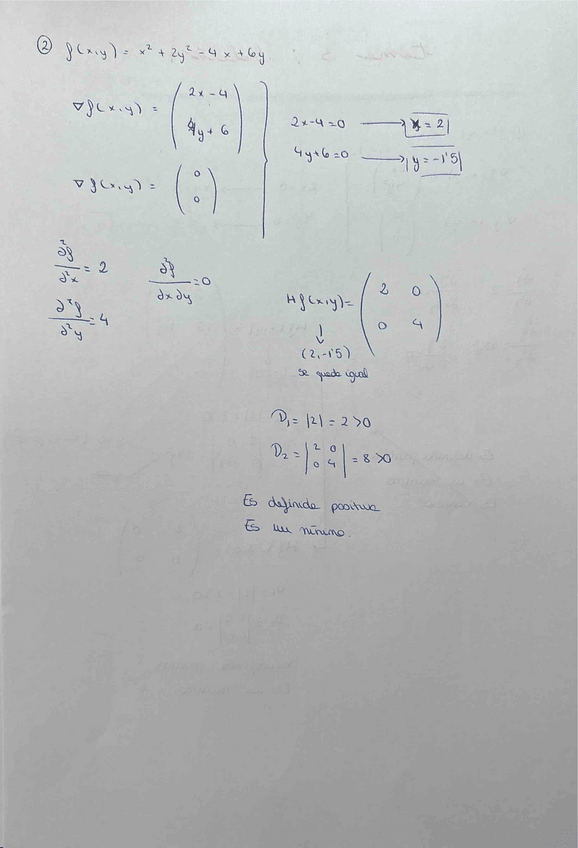 ② f(x,y) = x² + 2y² - 4x + 6y
∇f(x,y) = ( 2x - 4
4y + 6 )
2x-4=0 → x = 2
4y+6=0 → y = -1'5
∇f(x,y) = ( 0
0 )
∂²f/∂²x = 2
∂²f/∂x∂y = 0
∂²f/∂²y = 4
Hf(x,y) = ( 2 0
0 4 )
↓
(2,-1'5)
se queda igual
D₁ = |2| = 2 >0
D₂ = | 2 0
0 4 | = 8 >0
Es definida positiva
Es un mínimo.